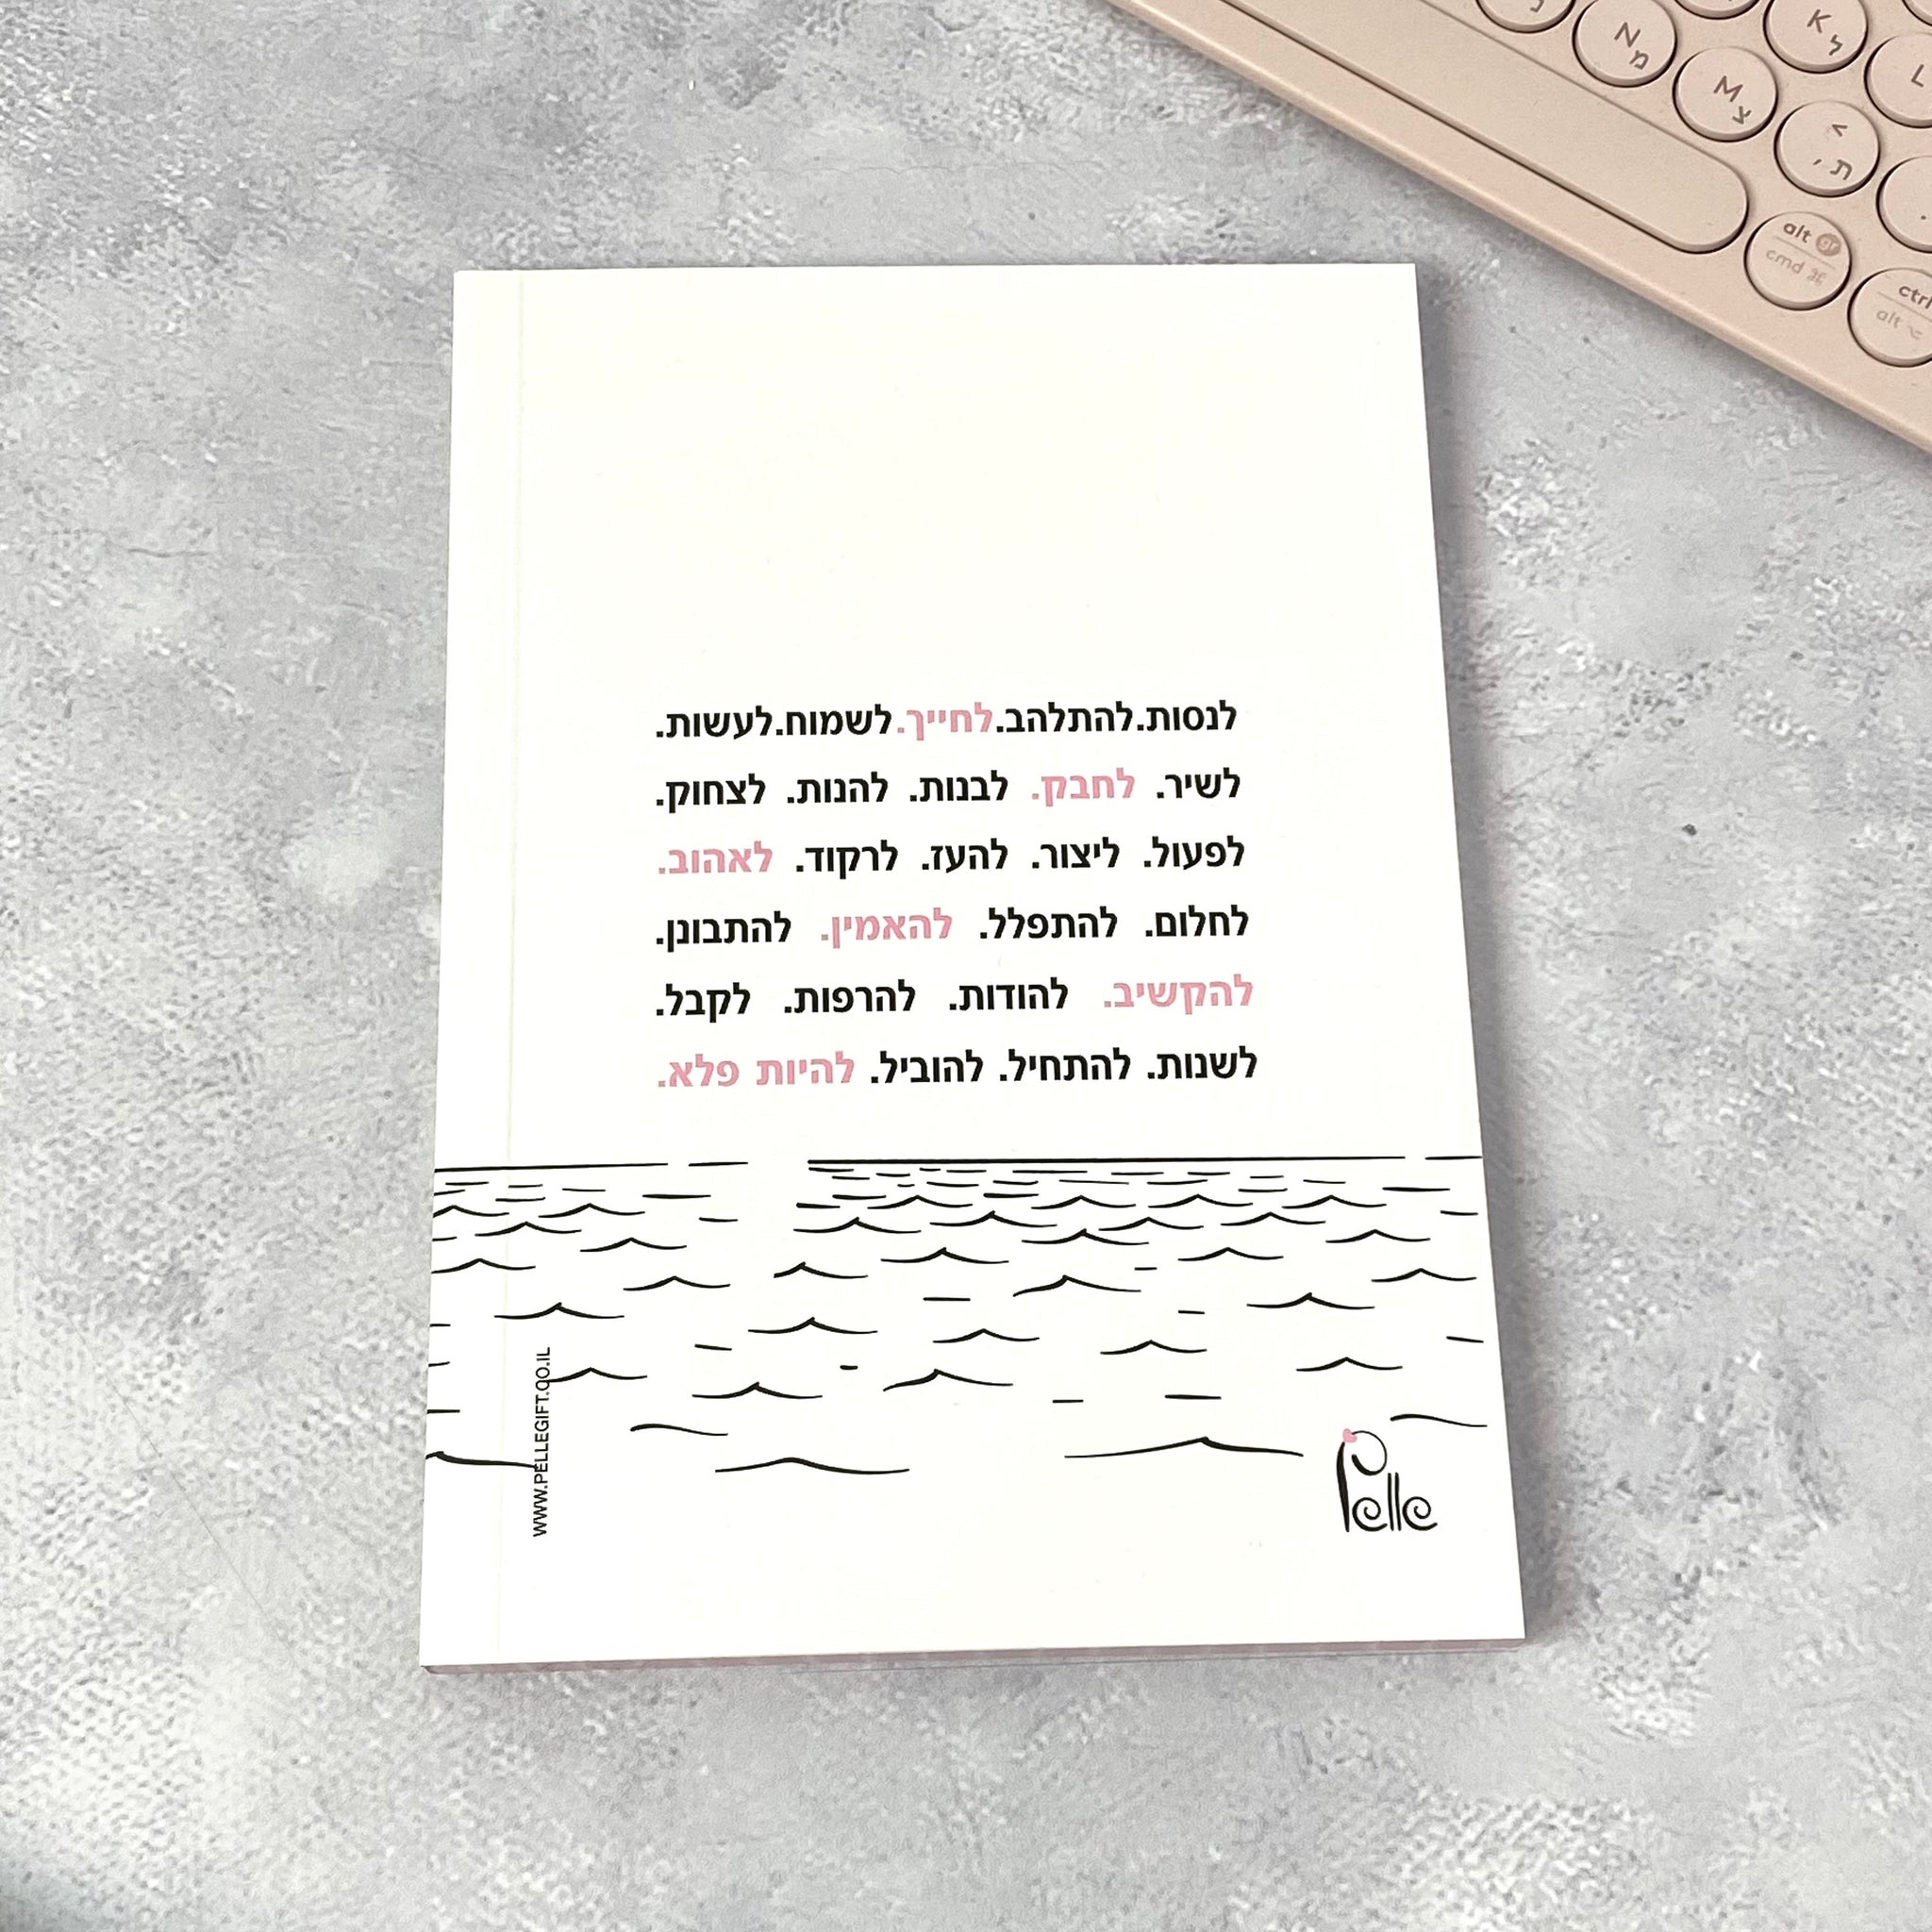 לנסות.להתלהב.לחייך.לשמוח.לעשות.
לשיר. לחבק. לבנות. להנות. לצחוק.
לפעול. ליצור. להעז. לרקוד. לאהוב.
לחלום. להתפלל. להאמין. להתבונן.
להקשיב. להודות. להרפות. לקבל.
לשנות. להתחיל. להוביל. להיות פלא.
WWW.PELLEGIFT.CO.IL
Pelle
K ל
L
N מ
M צ
< , ת
alt gr
cmd ⌘
ctrl
alt ⌥